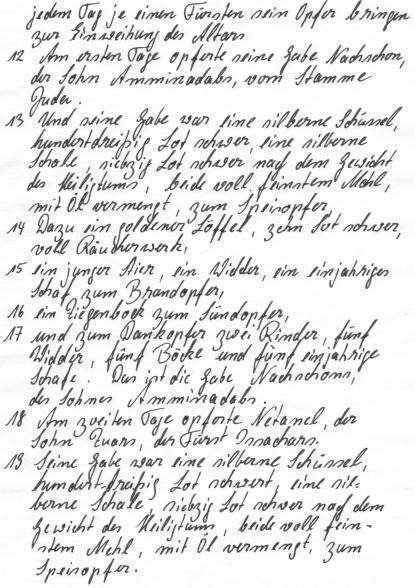 jedem Tag je einen Fürsten sein Opfer bringen
zur Einweihung des Altars
12 Am ersten Tage opferte seine Gabe Nachschon,
der Sohn Amminadabs, vom Stamme
Juda.
13 Und seine Gabe war eine silberne Schüssel,
hundertdreißig Lot schwer, eine silberne
Schale, siebzig Lot schwer nach dem Gewicht
des Heiligtums, beide voll feinstem Mehl,
mit Öl vermengt, zum Speisopfer,
14 Dazu ein goldener Löffel, zehn Lot schwer,
voll Räucherwerk,
15 ein junger Stier, ein Widder, ein einjähriges
Schaf zum Brandopfer,
16 ein Ziegenbock zum Sündopfer,
17 und zum Dankopfer zwei Rinder, fünf
Widder, fünf Böcke und fünf einjährige
Schafe. Das ist die Gabe Nachschons,
des Sohnes Amminadabs.
18 Am zweiten Tage opferte Netanel, der
Sohn Zuars, der Fürst Issachars.
19 Seine Gabe war eine silberne Schüssel,
hundert-dreißig Lot schwert, eine sil-
berne Schale, siebzig Lot schwer nach dem
Gewicht des Heiligtums, beide voll fein-
stem Mehl, mit Öl vermengt, zum
Speisopfer.